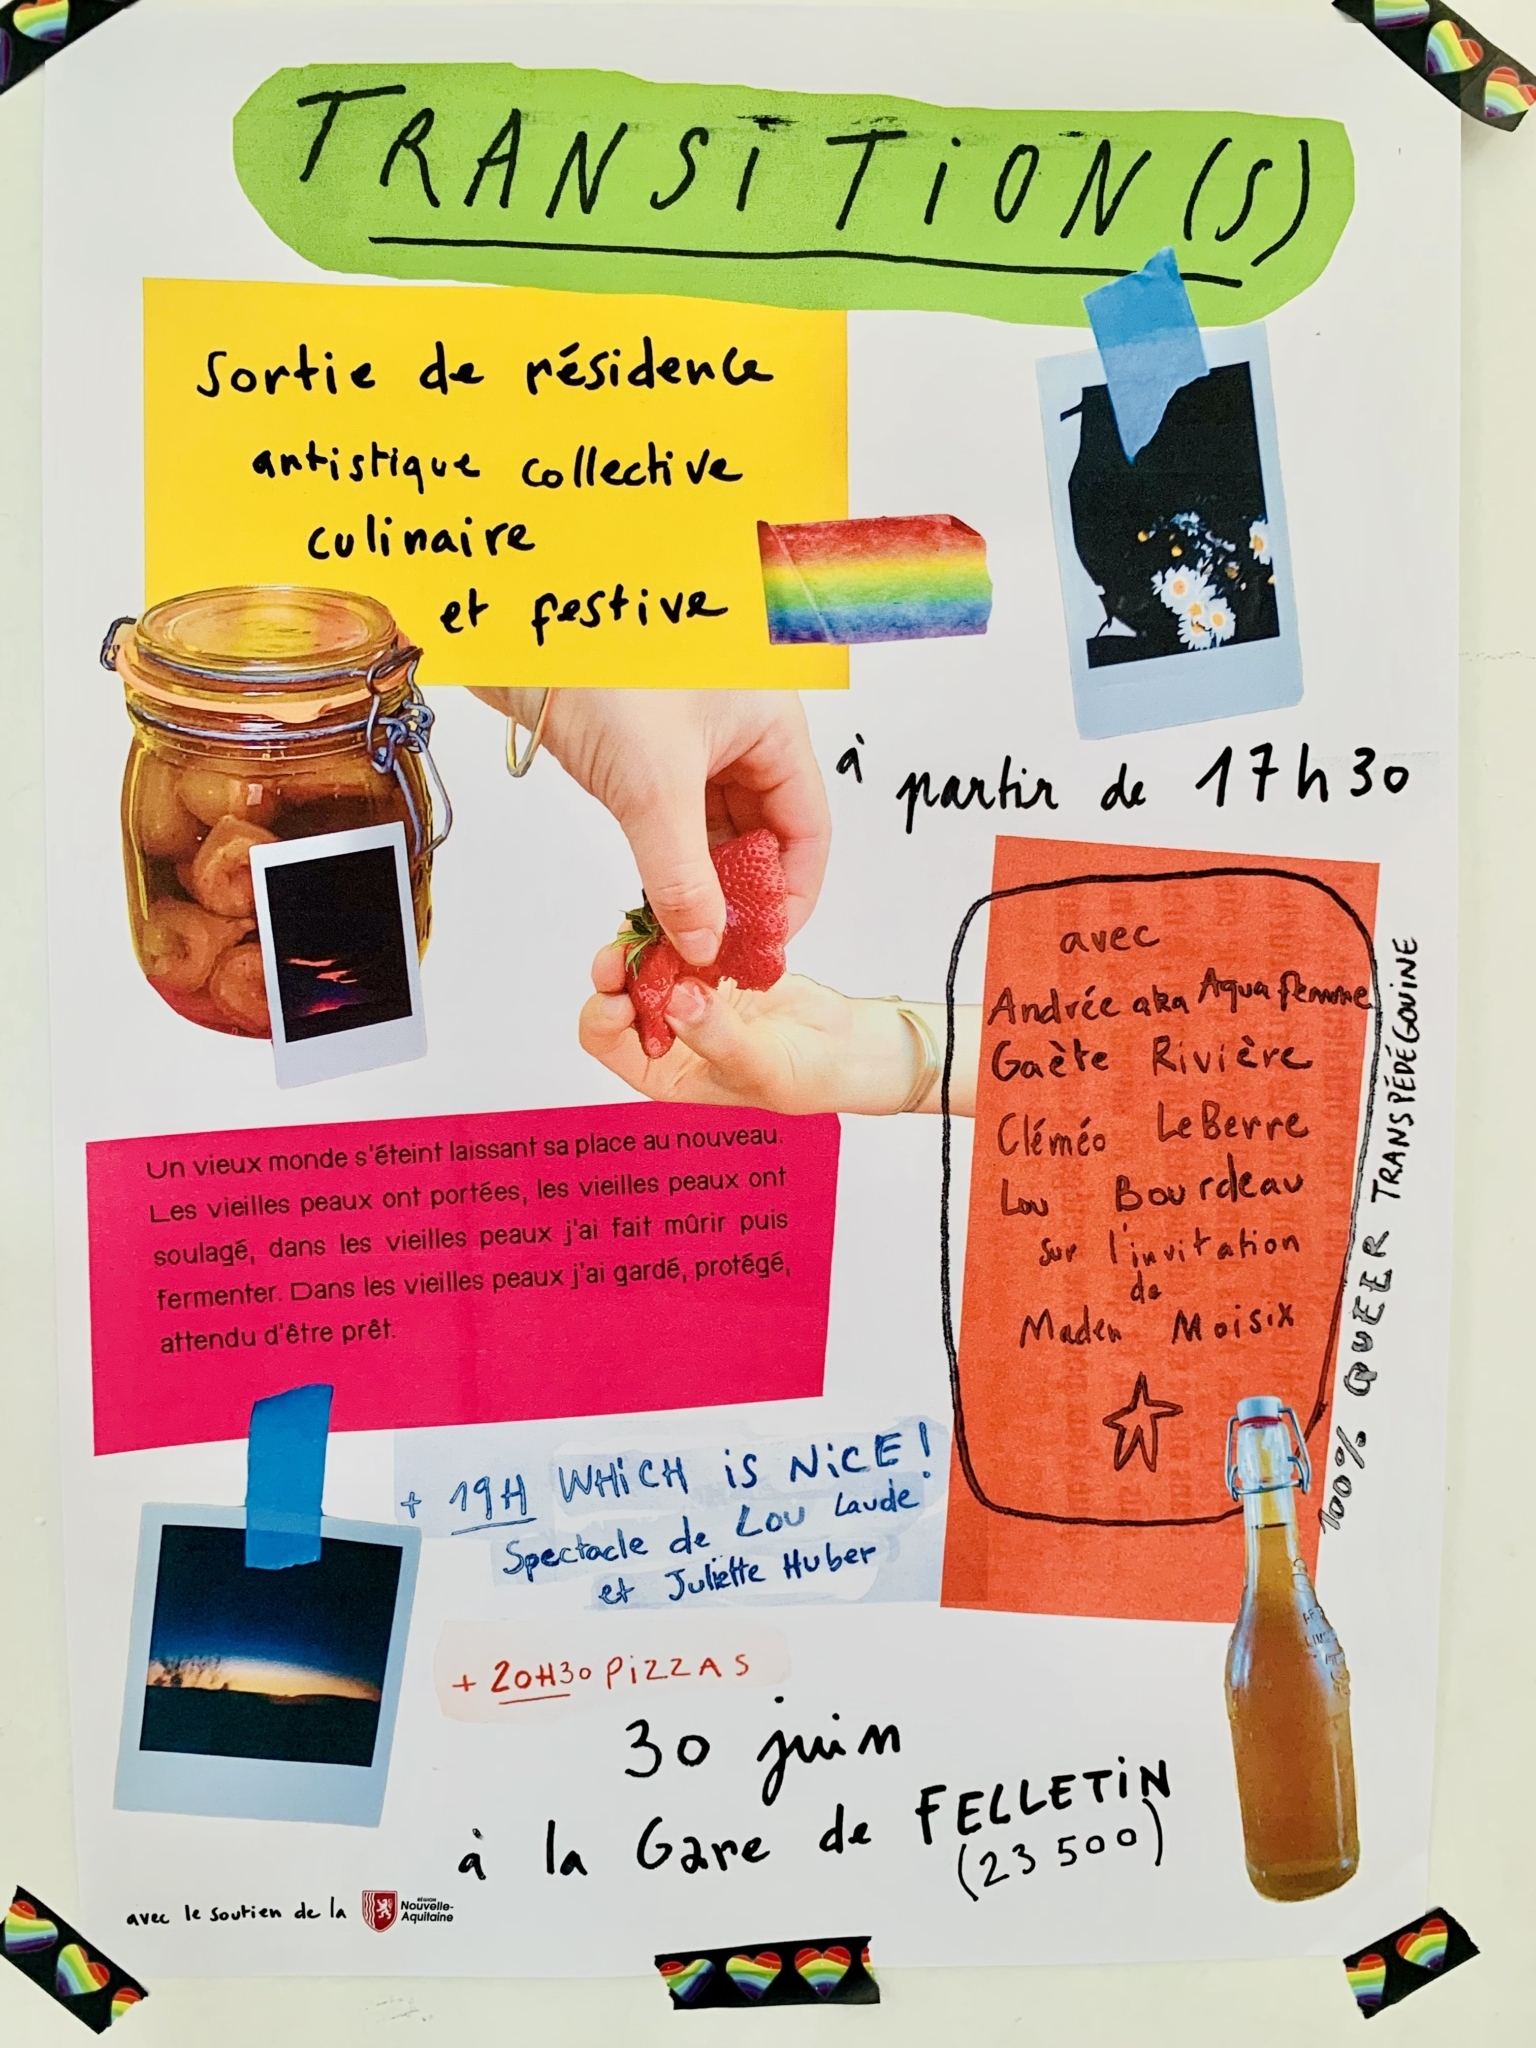 TRANSiTiON(S)
Sortie de résidence
artistique collective
culinaire
et festive
à partir de 17h30
avec
Andrée aka Aquafemme
Gaète Rivière
Cléméo LeBerre
Lou Bourdeau
sur l'invitation
de
Maden Moisix
100% QUEER TRANSPÉDÉGOUINE
Un vieux monde s'éteint laissant sa place au nouveau.
Les vieilles peaux ont portées, les vieilles peaux ont
soulagé, dans les vieilles peaux j'ai fait mûrir puis
fermenter. Dans les vieilles peaux j'ai gardé, protégé,
attendu d'être prêt.
+ 19H WHiCH iS NiCE!
Spectacle de Lou Laude
et Juliette Huber
+ 20H30 PiZZAS
30 juin
à la Gare de FELLETiN
(23500)
avec le soutien de la
RÉGION
Nouvelle-
Aquitaine